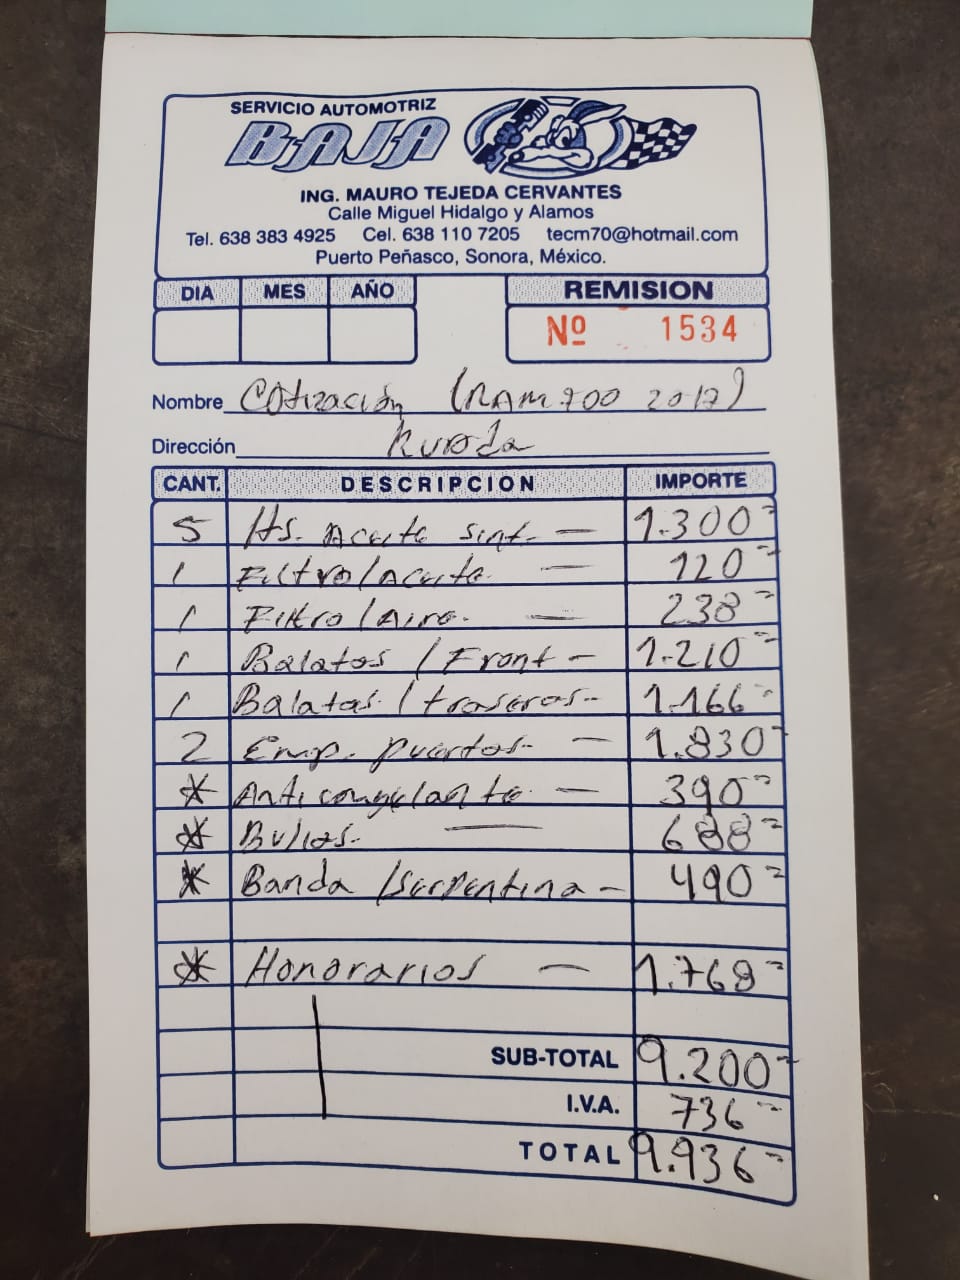 SERVICIO AUTOMOTRIZ
BAJA
ING. MAURO TEJEDA CERVANTES
Calle Miguel Hidalgo y Alamos
Tel. 638 383 4925 Cel. 638 110 7205 tecm70@hotmail.com
Puerto Peñasco, Sonora, México.
DIA MES AÑO REMISION
Nº 1534
Nombre Cotización (RAM 700 2017)
Dirección Rueda
CANT. DESCRIPCION IMPORTE
5 Lts. Aceite sint. — 1.300
1 Filtro/Aceite. — 120
1 Filtro/Aire. — 238
1 Balatas / Front — 1.210
1 Balatas / traseras — 1.166
2 Emp. puertas — 1.830
* Anticongelante — 390
* Bujias. — 688
* Banda /Serpentina — 490
* Honorarios — 1.768
SUB-TOTAL 9.200
I.V.A. 736
TOTAL 9.936